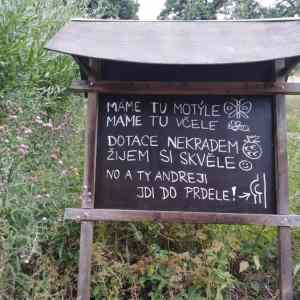 MÁME TU MOTÝLE
MÁME TU VČELE
DOTACE NEKRADEM
ŽIJEM SI SKVĚLE
NO A TY ANDREJI
JDI DO PRDELE!